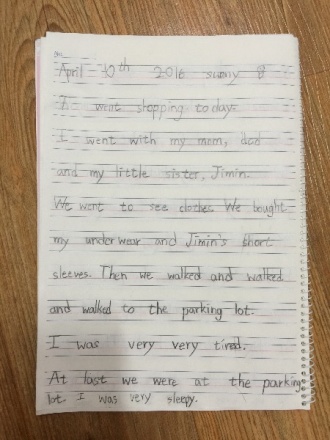 April 30th 2016 sunny
I went shopping today.
I went with my mom, dad
and my little sister, Jimin.
We went to see clothes. We bought
my underwear and Jimin's short
sleeves. Then we walked and walked
and walked to the parking lot.
I was very very tired.
At last we were at the parking
lot. I was very sleepy.